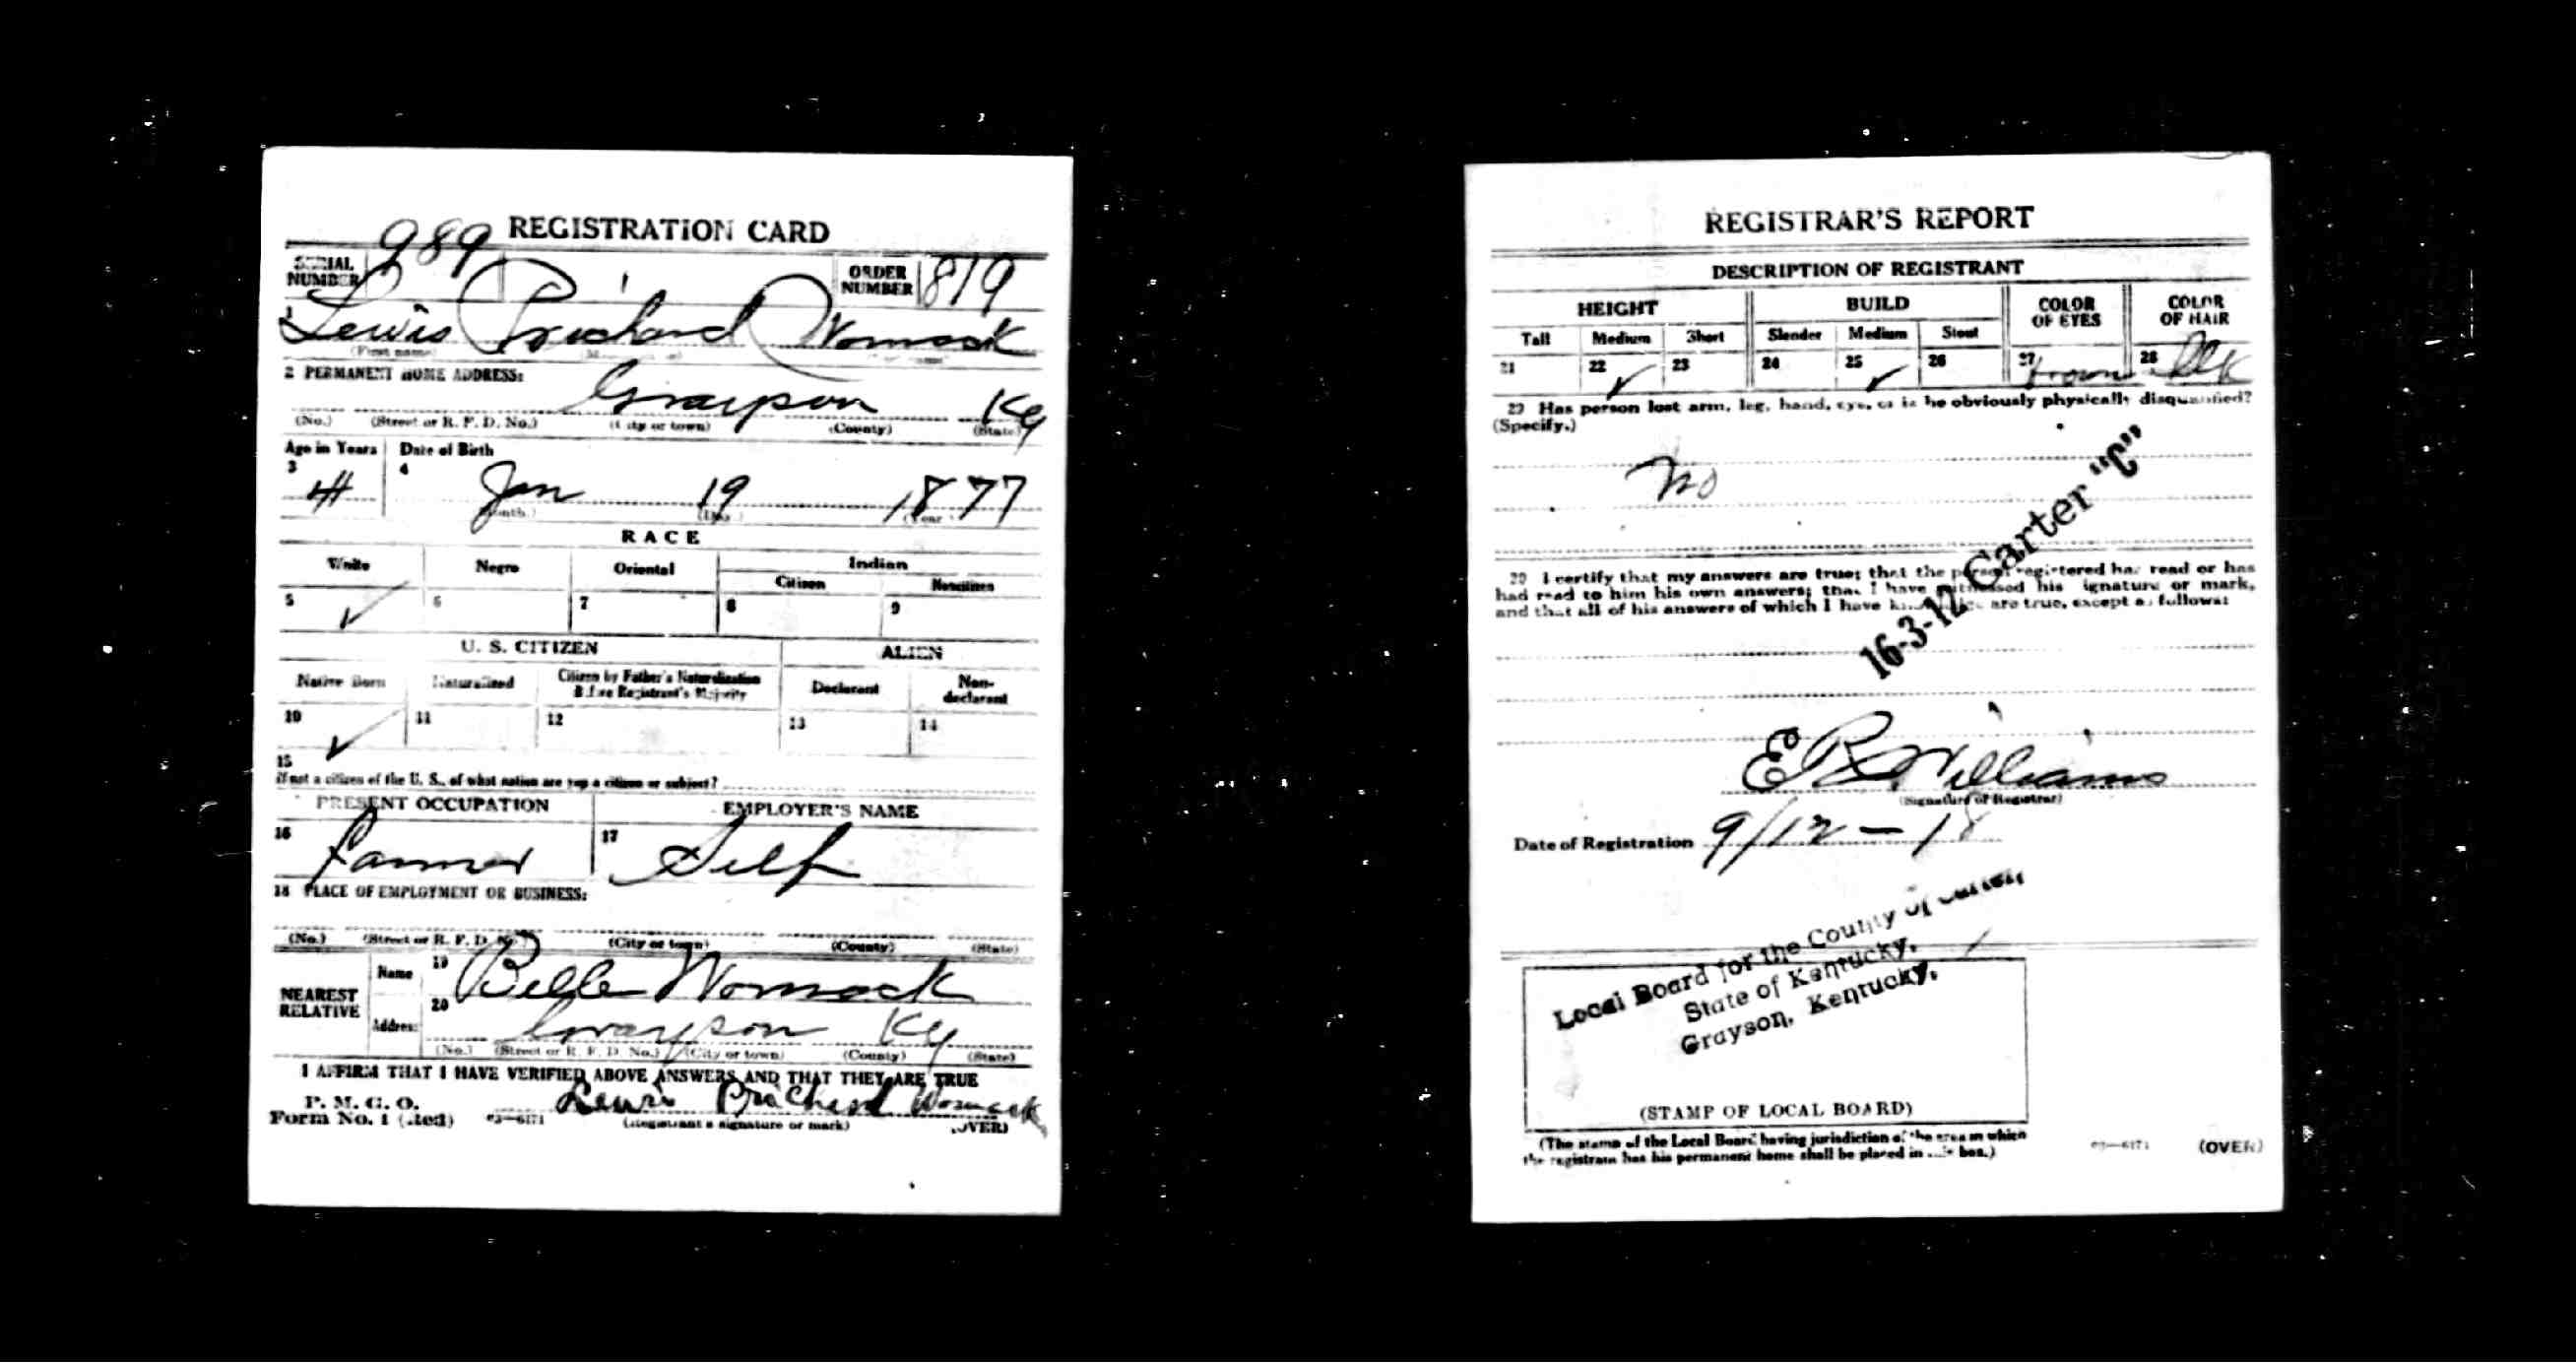 REGISTRATION CARD
SERIAL NUMBER 989
ORDER NUMBER 819
1 Lewis Prichard Womack
(First name)
2 PERMANENT HOME ADDRESS:
Grayson Ky
(No.) (Street or R. F. D. No.) (City or town) (County) (State)
Age in Years Date of Birth
3 41 4 Jan 19 1877
(Month.) (Day.) (Year.)
RACE
White Negro Oriental Indian
Citizen Noncitizen
5 ✓ 6 7 8 9
U. S. CITIZEN ALIEN
Native Born Naturalized Citizen by Father's Naturalization Before Registrant's Majority Declarant Non-declarant
10 ✓ 11 12 13 14
15
If not a citizen of the U. S., of what nation are you a citizen or subject?
PRESENT OCCUPATION EMPLOYER'S NAME
16 Farmer 17 Self
18 PLACE OF EMPLOYMENT OR BUSINESS:
(No.) (Street or R. F. D. No.) (City or town) (County) (State)
NEAREST RELATIVE
Name 19 Belle Womack
Address 20 Grayson Ky
(No.) (Street or R. F. D. No.) (City or town) (County) (State)
I AFFIRM THAT I HAVE VERIFIED ABOVE ANSWERS AND THAT THEY ARE TRUE
P. M. G. O.
Form No. 1 (Red) 03—6171 Lewis Prichard Womack
(Registrant's signature or mark) (OVER)
REGISTRAR'S REPORT
DESCRIPTION OF REGISTRANT
HEIGHT BUILD COLOR OF EYES COLOR OF HAIR
Tall Medium Short Slender Medium Stout
21 22 ✓ 23 24 25 ✓ 26 27 brown 28 blk
29 Has person lost arm, leg, hand, eye, or is he obviously physically disqualified?
(Specify.)
No
16-3-12 Carter "C"
30 I certify that my answers are true; that the person registered has read or has
had read to him his own answers; that I have witnessed his signature or mark,
and that all of his answers of which I have knowledge are true, except as follows:
E R Williams
(Signature of Registrar)
Date of Registration 9/12-18
Local Board for the County of Carter,
State of Kentucky,
Grayson, Kentucky.
(STAMP OF LOCAL BOARD)
(The stamp of the Local Board having jurisdiction of the area in which
the registrant has his permanent home shall be placed in this box.)
03—6171 (OVER)